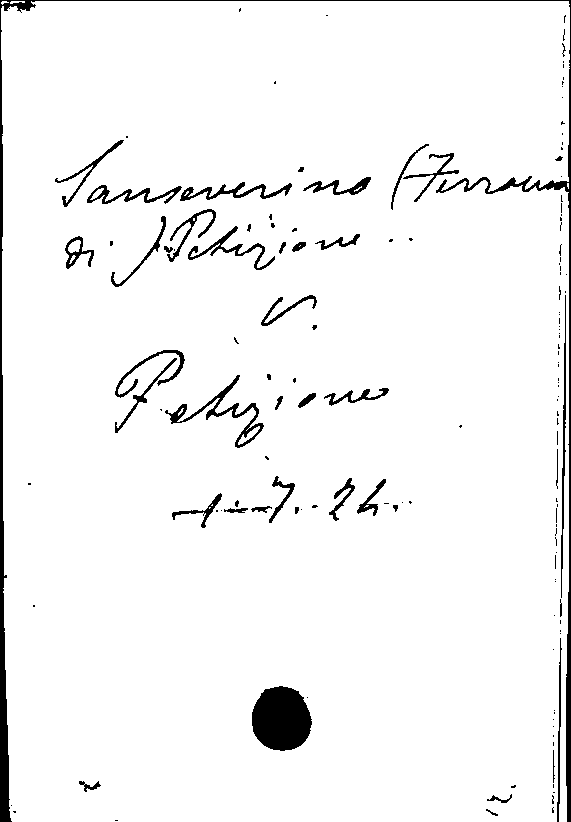 Sanseverino (Ferrovia
di) Petizione..
V.
Petizione
7.24.